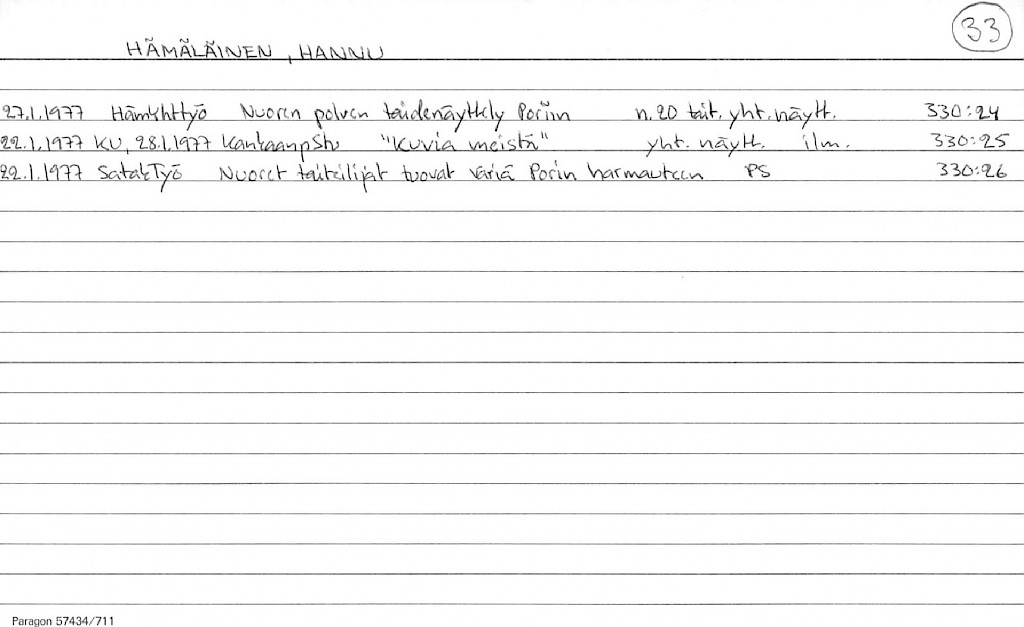 33
HÄMÄLÄINEN, HANNU
27.1.1977 HämKhtTyö Nuoren polven taidenäyttely Poriin n. 20 tait. yht. näytt. 330:24
22.1.1977 KU, 28.1.1977 KankaanpStu "Kuvia meistä" yht. näytt. ilm. 330:25
22.1.1977 SatakTyö Nuoret taiteilijat tuovat väriä Porin harmauteen PS 330:26
Paragon 57434/711